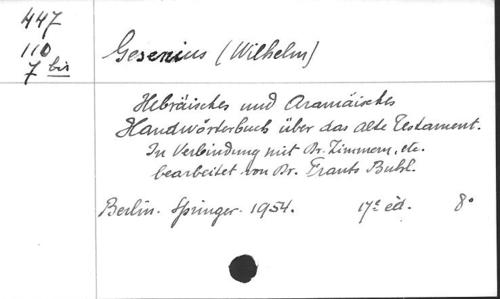 447
110
7 bis
Gesenius (Wilhelm)
Hebräisches und Aramäisches
Handwörterbuch über das alte Testament.
In Verbindung mit Dr. Zimmern, etc.
bearbeitet von Dr. Frants Buhl.
Berlin. Springer. 1954. 17e éd. 8°